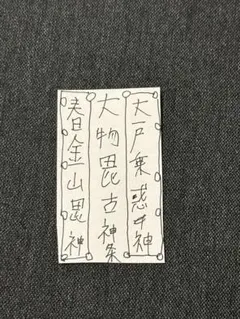 大戸乗惑女神
大物毘古神条
春金山毘神